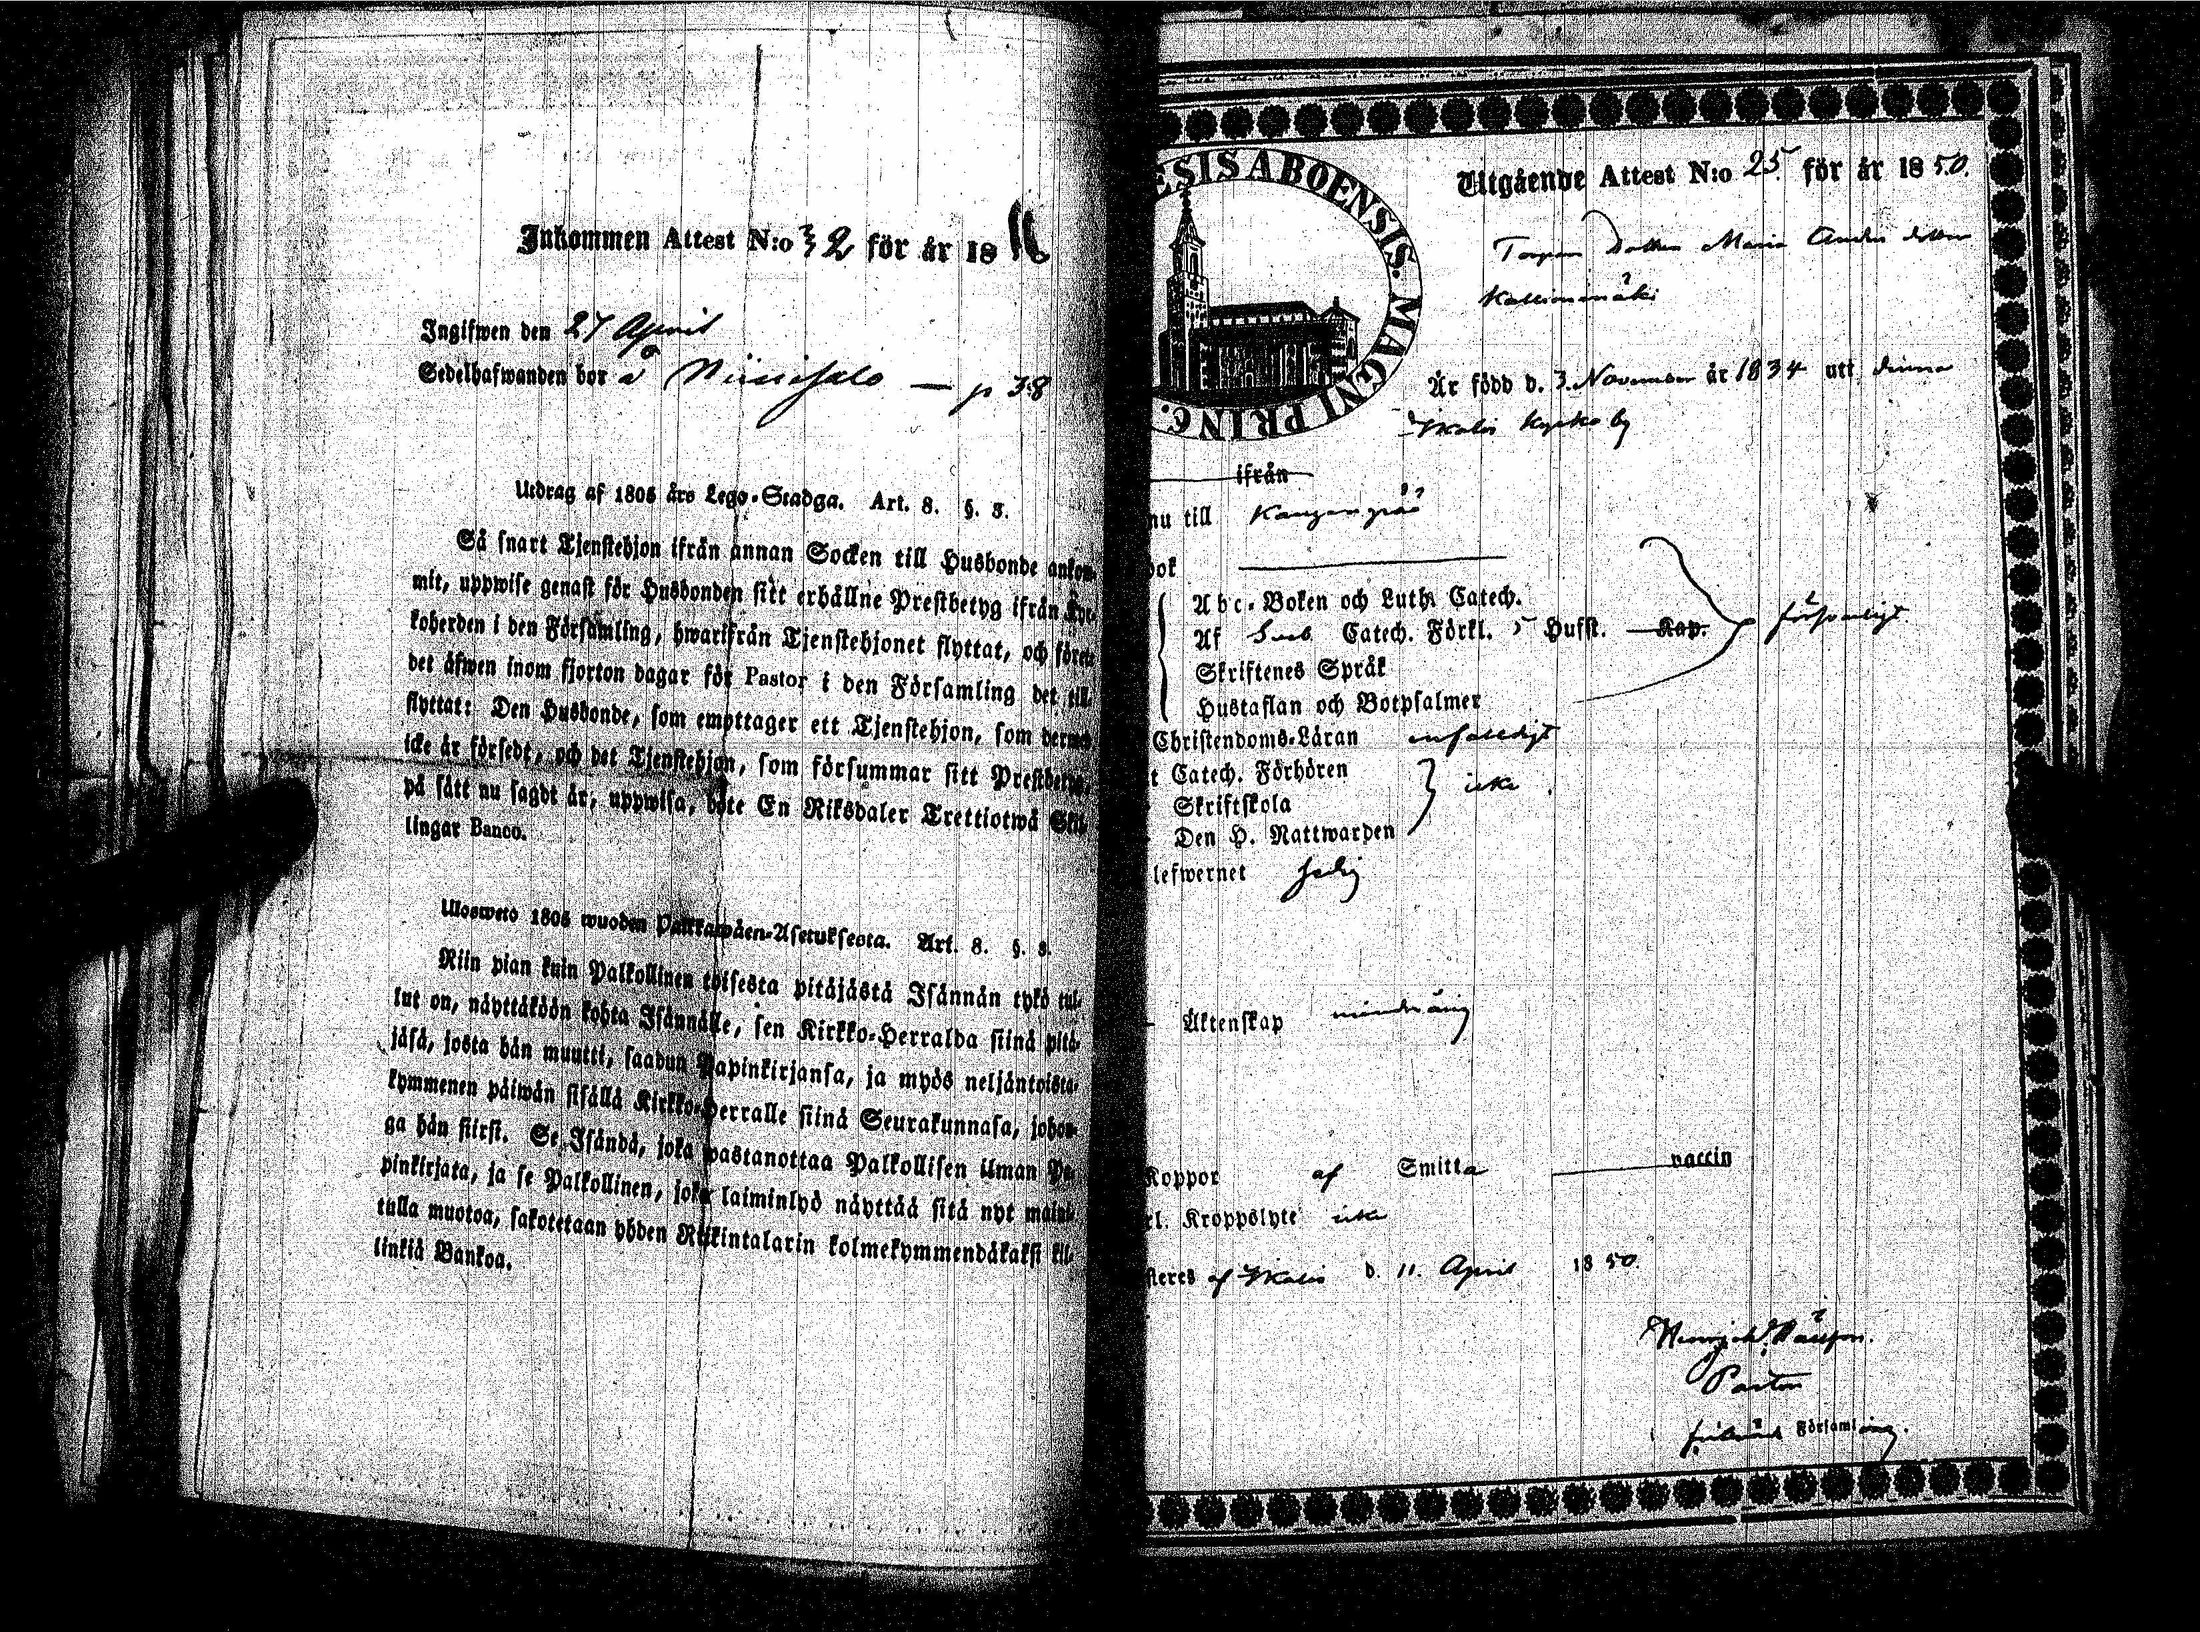 Inkommen Attest N:o 32 för år 18
Ingifwen den 27 April
Sedelhafwanden bor å Niinisalo — p 38
Utdrag af 1805 års Lego-Stadga. Art. 8. §. 3.
Så snart Tjenstehjon ifrån annan Socken till Husbonde ankom-
mit, uppwise genast för Husbonden sitt erhållne Prestbetyg ifrån Kyr-
koherden i den Församling, hwarifrån Tjenstehjonet flyttat, och förete
det äfwen inom fjorton dagar för Pastor i den Församling det till-
flyttat: Den Husbonde, som emottager ett Tjenstehjon, som dermed
icke är försedt, och det Tjenstehjon, som försummar sitt Prestbetyg,
på sätt nu sagdt är, uppwisa, böte En Riksdaler Trettiotwå Skil-
lingar Banco.
Ulosweto 1805 wuoden Palkkawäen-Asetuksesta. Art. 8. §. 3.
Niin pian kuin Palkollinen toisesta pitäjästä Isännän tykö tul-
lut on, näyttäköön kohta Isännälle, sen Kirkko-Herralda siinä pitä-
jäsä, josta hän muutti, saadun Papinkirjansa, ja myös neljäntoista-
kymmenen päiwän sisällä Kirkko-Herralle siinä Seurakunnasa, johon-
ga hän siirsi. Se Isändä, joka wastanottaa Palkollisen ilman Pa-
pinkirjata, ja se Palkollinen, joka laiminlyö näyttää sitä nyt maini-
tulla muotoa, sakotetaan yhden Riikintalarin kolmekymmendäkaksi kil-
linkiä Bankoa.
ESIS ABOENSIS. MAGNI PRINC.
Utgående Attest N:o 25 för år 1850.
Torpare Dottren Maria Anders dotter
Kallionmäki
Är född d. 3. November år 1834 utt denna
Ikalis kyrkoby
ifrån
nu till Kangan
bok
Abc-Boken och Luth. Catech.
Af Sveb. Catech. Förkl. 5 Hufst. Kap. försvarligt
Skriftenes Språk
Hustaflan och Botpsalmer
Christendoms-Läran enfaldigt
t Catech. Förhören
Skriftskola icke
Den H. Nattwarden
lefwernet sedig
Äktenskap minderårig
Koppor af Smitta vaccin
rl. Kroppslyte icke
steres af Ikalis d. 11. April 1850.
Pastor
Församling.